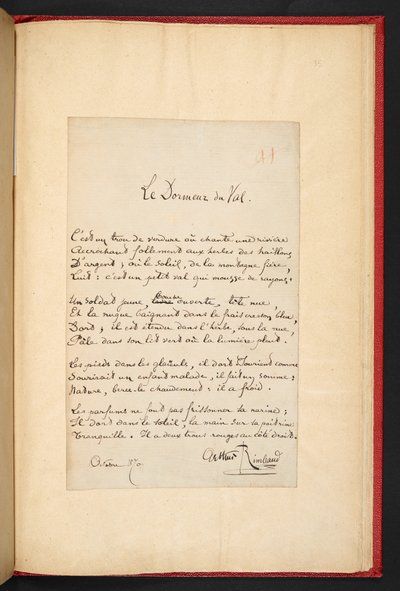 35
41
Le Dormeur du Val.
C'est un trou de verdure où chante une rivière
Accrochant follement aux herbes des haillons
D'argent ; où le soleil, de la montagne fière,
Luit : c'est un petit val qui mousse de rayons.
Un soldat jeune, bouche ouverte, tête nue,
Et la nuque baignant dans le frais cresson bleu,
Dort ; il est étendu dans l'herbe, sous la nue,
Pâle dans son lit vert où la lumière pleut.
Les pieds dans les glaïeuls, il dort. Souriant comme
Sourirait un enfant malade, il fait un somme :
Nature, berce-le chaudement : il a froid.
Les parfums ne font pas frissonner sa narine ;
Il dort dans le soleil, la main sur sa poitrine
Tranquille. Il a deux trous rouges au côté droit.
Arthur Rimbaud
Octobre 1870